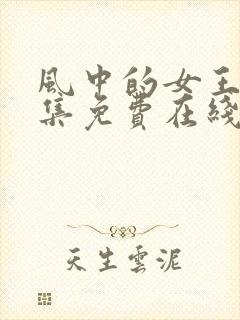 風中的女王
集免費在綫
天生雲泥